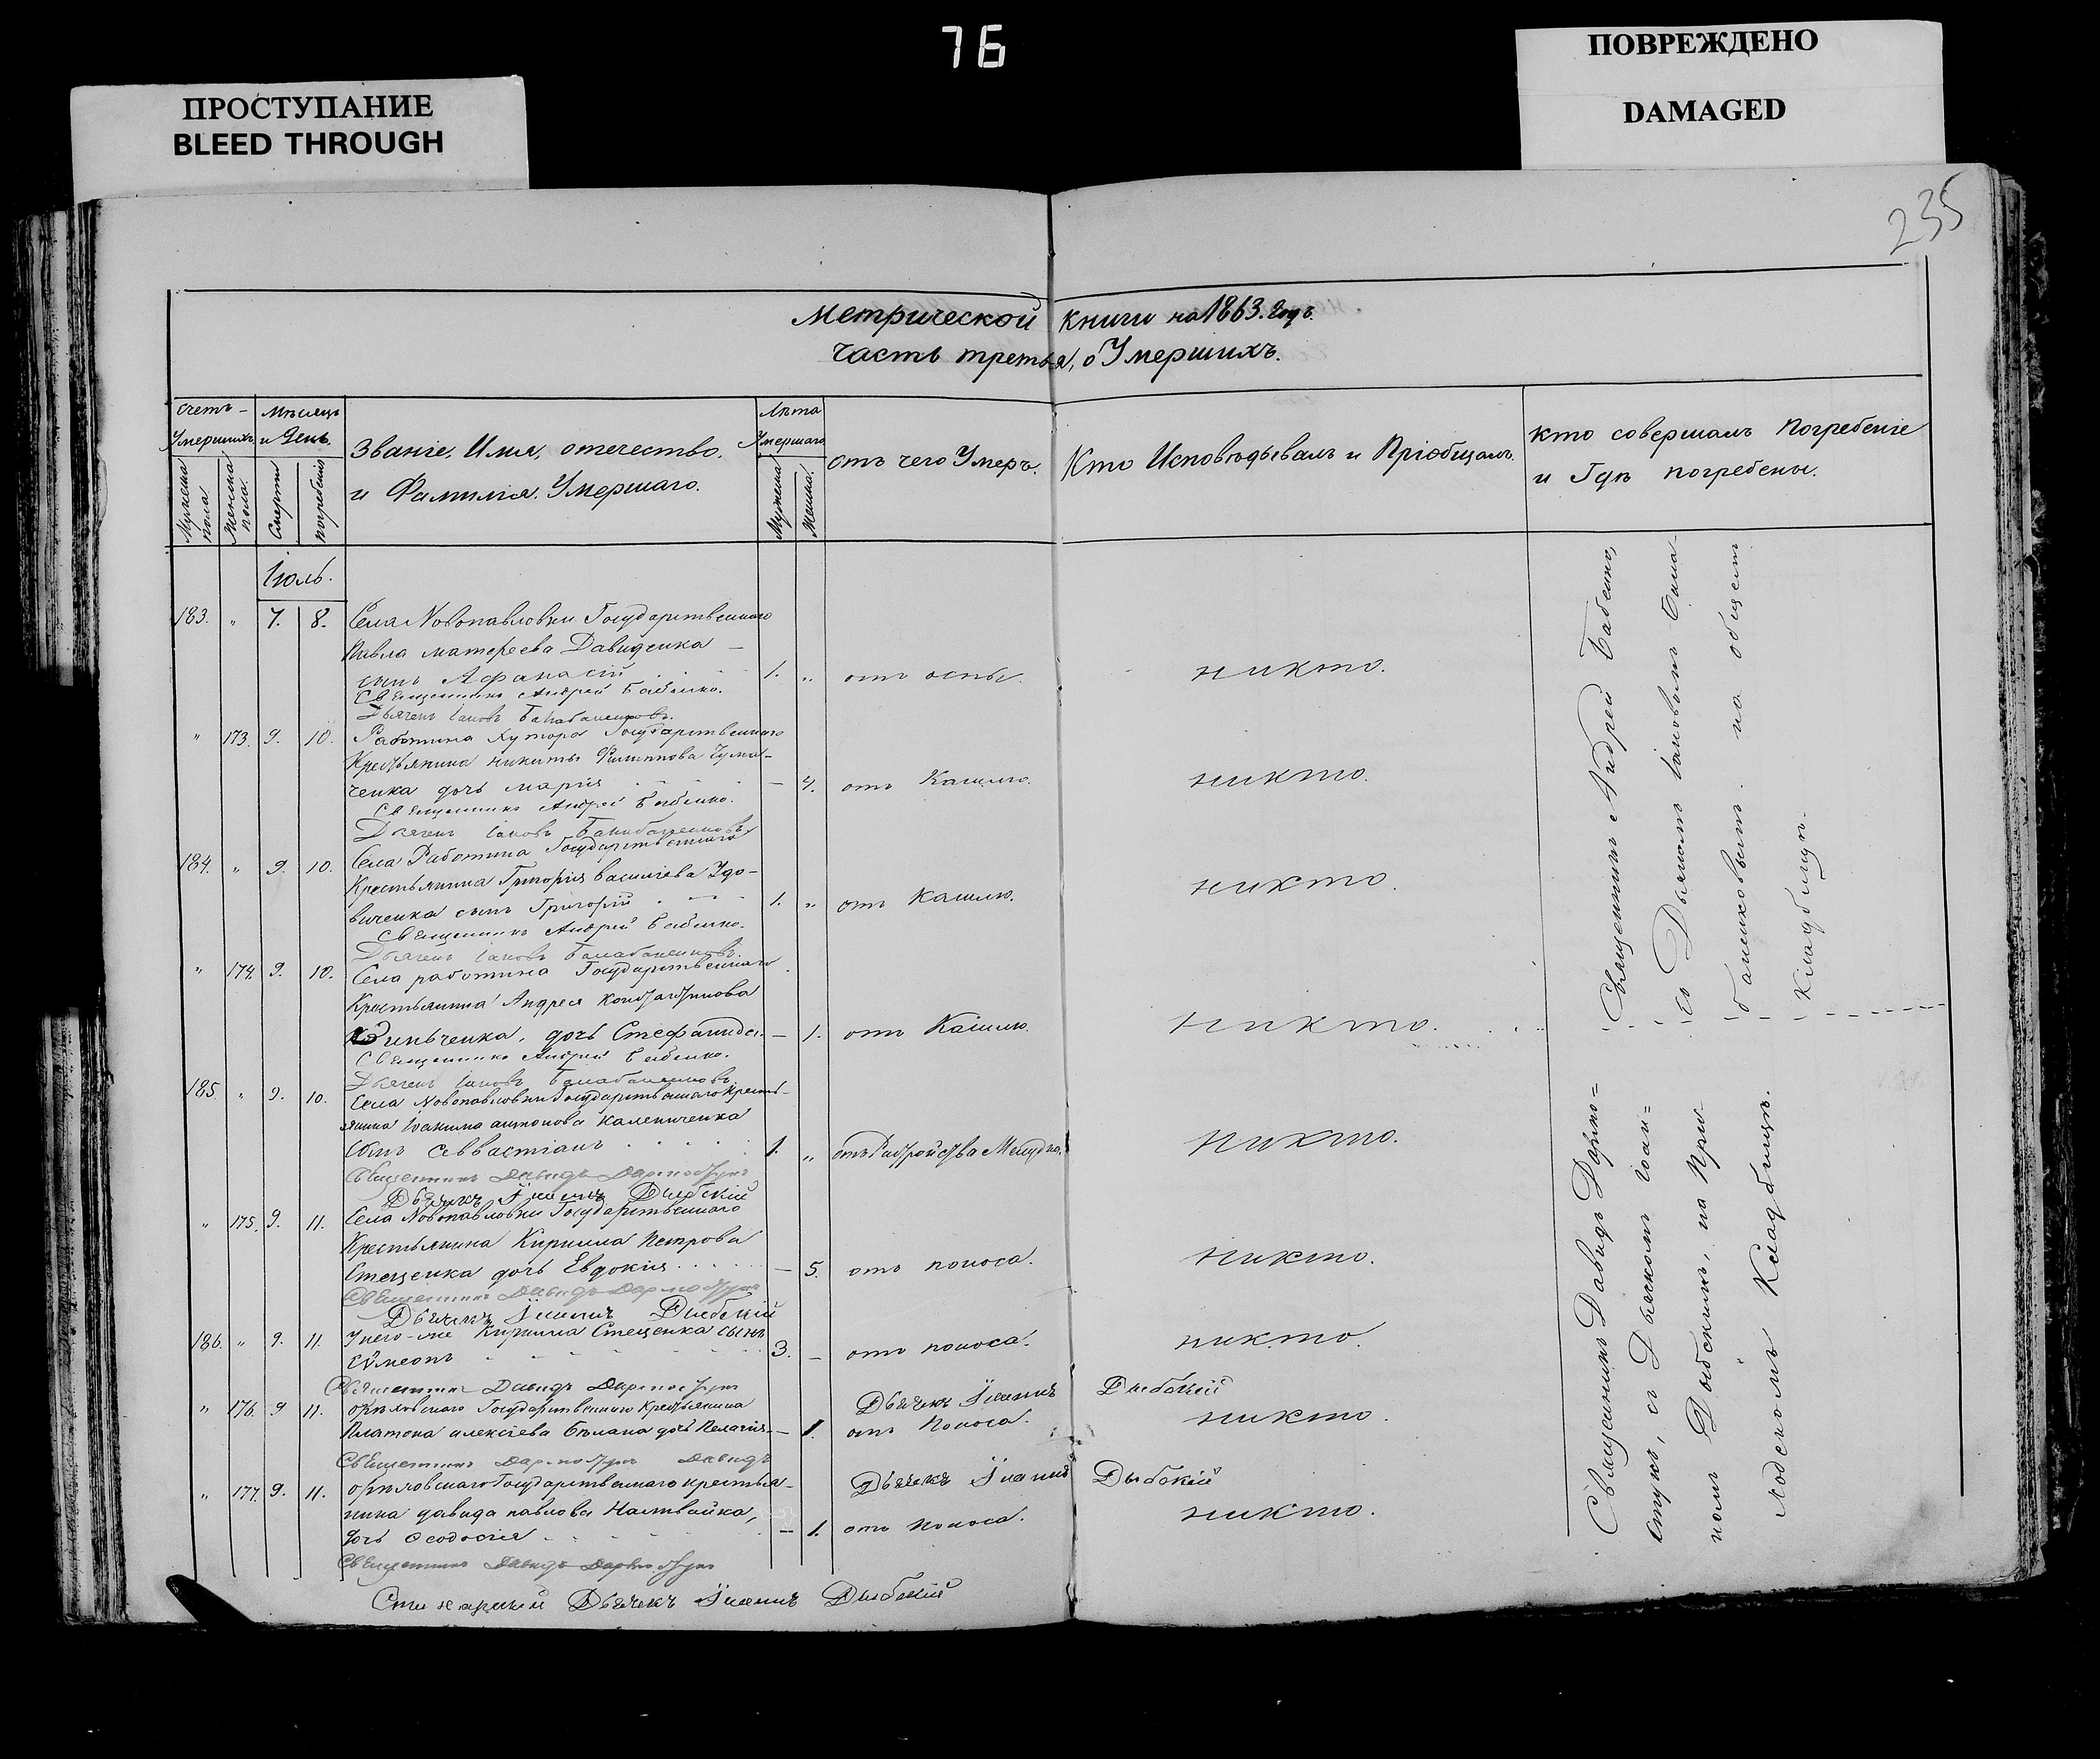 76
ПРОСТУПАНИЕ
BLEED THROUGH
ПОВРЕЖДЕНО
DAMAGED
235
Метрической книги на 1863. Годъ.
Часть третья, о Умершихъ.
Счетъ Умершихъ.
Мужеска пола
Женска пола.
Мѣсяцъ и День.
Смерти
погребенія
Званіе, Имя, отечество,
и Фамилія Умершаго.
Лѣта Умершаго
Мужеска
Женска.
отъ чего Умеръ.
Кто Исповѣдывалъ и Пріобщалъ.
Кто совершалъ Погребеніе
и Гдѣ погребены.
Іюль.
183. " 7. 8. Села Новопавловки Государственнаго
Павла Матфеева Давиденка
сынъ Афанасій 1. " отъ оспы. никто.
Священникъ Андрей Бабенко.
Дьячекъ Іаковъ Балабаненковъ.
" 173. 9. 10. Работина Хутора Государственнаго
Крестьянина Никиты Филиппова Чума-
ченка дочь Марія — 4. отъ Кашлю. никто.
Священникъ Андрей Бабенко.
Дьячекъ Іаковъ Балабаненковъ
184. " 9. 10. Села Работина Государственнаго
Крестьянина Григорія Василіева Удо-
виченка сынъ Григорій 1. " отъ Кашлю. никто.
Священникъ Андрей Бабенко.
Дьячекъ Іаковъ Балабаненковъ.
" 174. 9. 10. Села работина Государственнаго
Крестьянина Андрея
дочь Стефанида — 1. отъ Кашлю. никто.
Священникъ Андрей Бабенко.
Дьячекъ Іаковъ Балабаненковъ
185. " 9. 10. Села Новопавловки Государственнаго Кресть-
янина Іоакима Антонова Калениченка
сынъ Севвастіанъ 1. " отъ Разстройства Желудка. никто.
Священникъ Давидъ
Дьячекъ Іоаннъ Дыбскій
" 175. 9. 11. Села Новопавловки Государственнаго
Крестьянина Кирилла Петрова
Стеценка дочь Евдокія — 5. отъ поноса. никто.
Священникъ Давидъ
Дьячекъ Іоаннъ Дыбскій
186. " 9. 11. У него-же Кирилла Стеценка сынъ
Сѵмеонъ 3. — отъ поноса. никто.
Священникъ Давидъ
Дьячекъ Іоаннъ Дыбскій
" 176. 9 11. Орѣховскаго Государственнаго Крестьянина
Платона Алексіева Бѣлана дочь Пелагія — 1. отъ Поноса. никто.
Священникъ Давидъ
Дьячекъ Іоаннъ Дыбскій
" 177. 9. 11. Орѣховскаго Государственнаго крестья-
нина Давида Павлова
дочь Ѳеодосія — 1. отъ Поноса. никто.
Священникъ Давидъ
Дьячекъ Іоаннъ Дыбскій
Священникъ Андрей Бабенко,
съ Дьячкомъ Іаковомъ Бала-
баненковымъ. на общемъ
Кладбищѣ.
Священникъ Давидъ
съ Дьячкомъ Іоан-
номъ Дыбскимъ, на При-
ходскомъ Кладбищѣ.